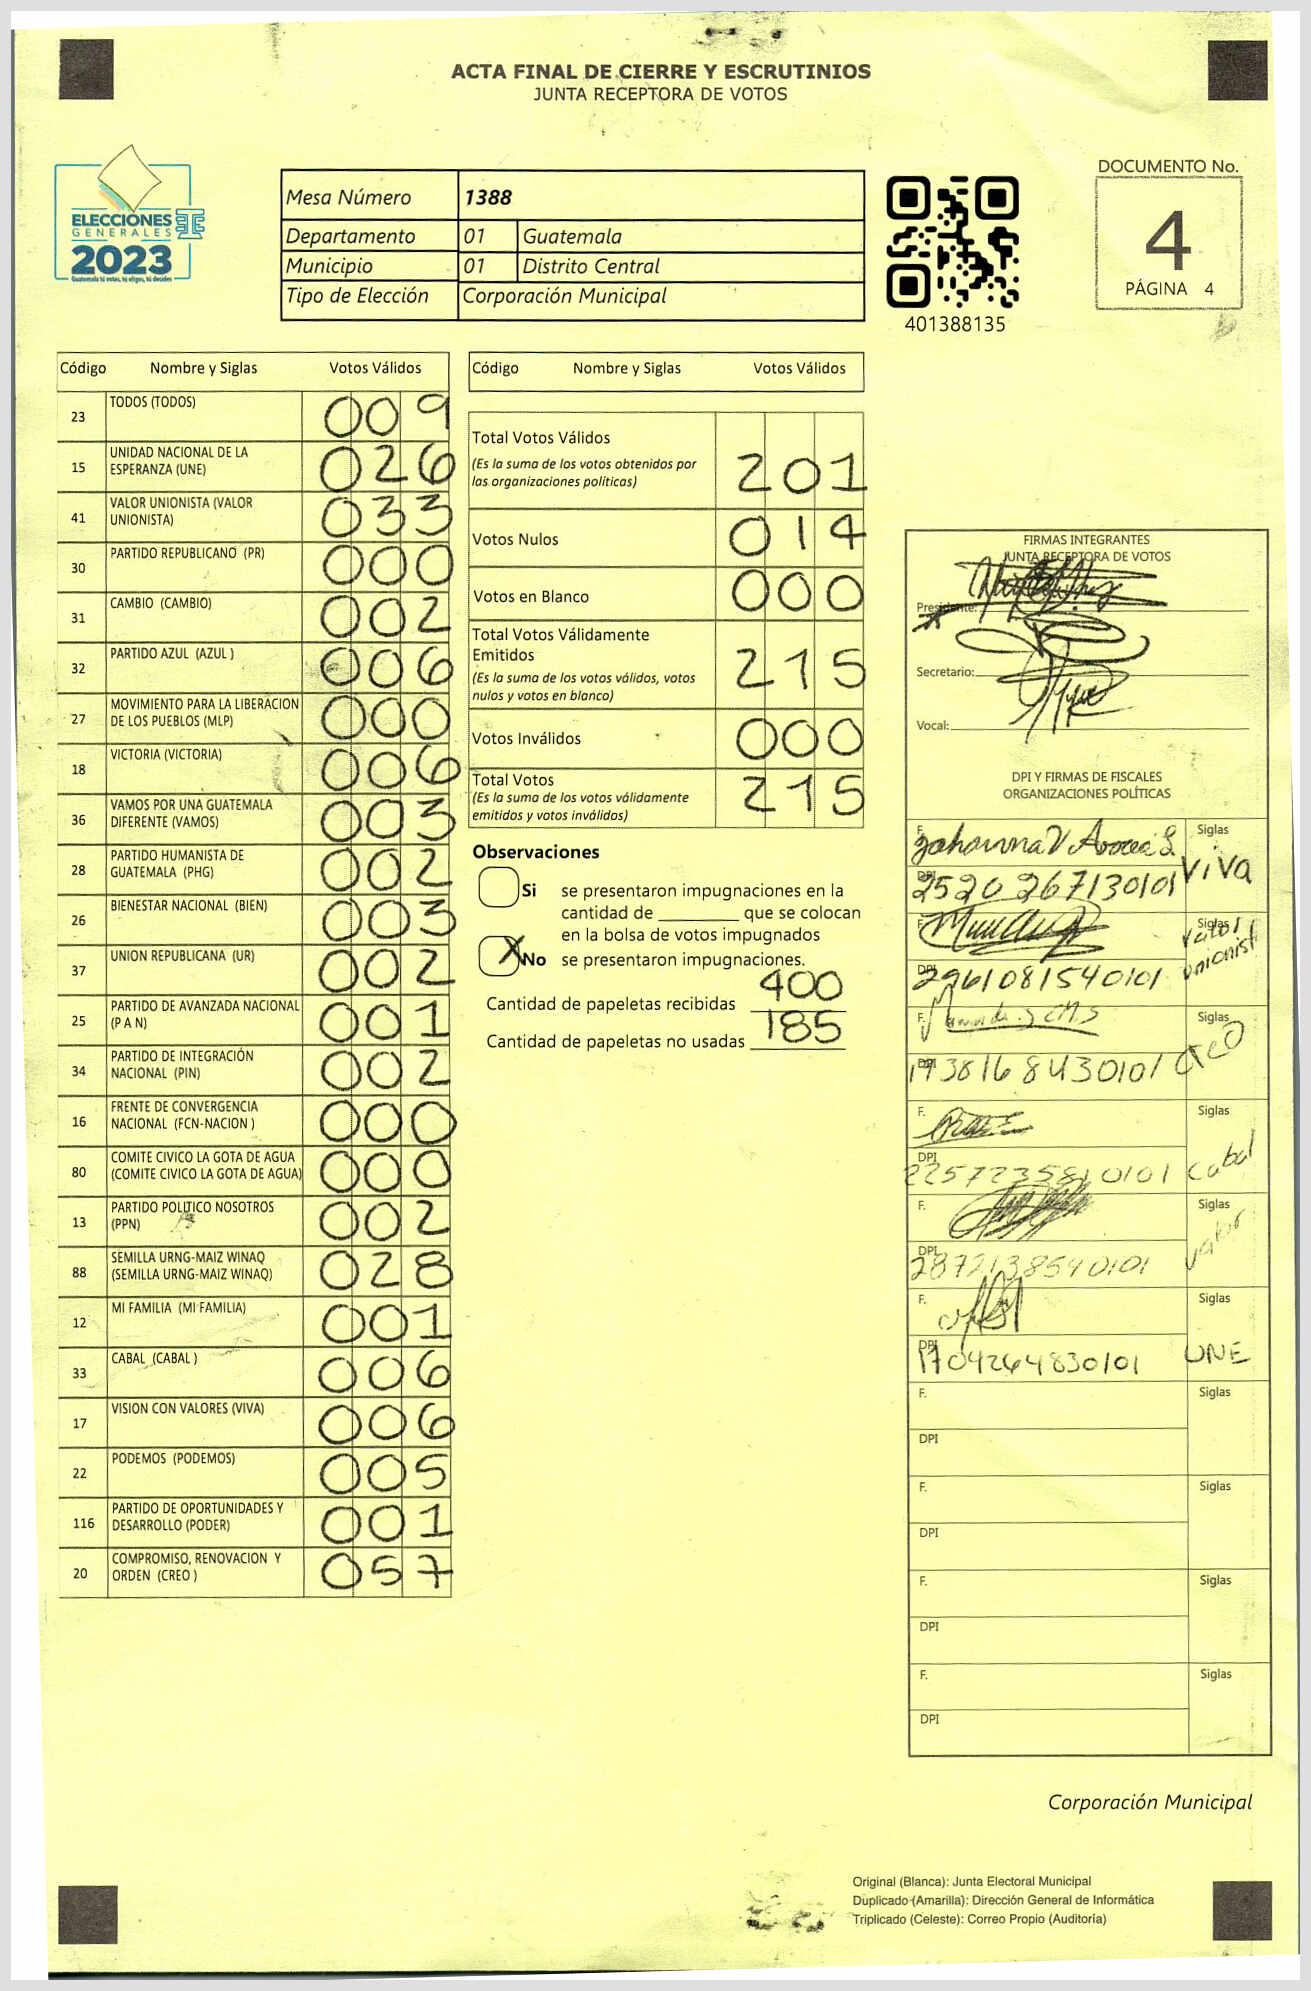 ACTA FINAL DE CIERRE Y ESCRUTINIOS
JUNTA RECEPTORA DE VOTOS
ELECCIONES
GENERALES
2023
Guatemala tú votas, tú eliges, tú decides
Mesa Número 1388
Departamento 01 Guatemala
Municipio 01 Distrito Central
Tipo de Elección Corporación Municipal
401388135
DOCUMENTO No.
4
PÁGINA 4
Código Nombre y Siglas Votos Válidos
23 TODOS (TODOS) 009
15 UNIDAD NACIONAL DE LA ESPERANZA (UNE) 026
41 VALOR UNIONISTA (VALOR UNIONISTA) 033
30 PARTIDO REPUBLICANO (PR) 000
31 CAMBIO (CAMBIO) 002
32 PARTIDO AZUL (AZUL ) 006
27 MOVIMIENTO PARA LA LIBERACION DE LOS PUEBLOS (MLP) 000
18 VICTORIA (VICTORIA) 006
36 VAMOS POR UNA GUATEMALA DIFERENTE (VAMOS) 003
28 PARTIDO HUMANISTA DE GUATEMALA (PHG) 002
26 BIENESTAR NACIONAL (BIEN) 003
37 UNION REPUBLICANA (UR) 002
25 PARTIDO DE AVANZADA NACIONAL (P A N) 001
34 PARTIDO DE INTEGRACIÓN NACIONAL (PIN) 002
16 FRENTE DE CONVERGENCIA NACIONAL (FCN-NACION ) 000
80 COMITE CIVICO LA GOTA DE AGUA (COMITE CIVICO LA GOTA DE AGUA) 000
13 PARTIDO POLITICO NOSOTROS (PPN) 002
88 SEMILLA URNG-MAIZ WINAQ (SEMILLA URNG-MAIZ WINAQ) 028
12 MI FAMILIA (MI FAMILIA) 001
33 CABAL (CABAL ) 006
17 VISION CON VALORES (VIVA) 006
22 PODEMOS (PODEMOS) 005
116 PARTIDO DE OPORTUNIDADES Y DESARROLLO (PODER) 001
20 COMPROMISO, RENOVACION Y ORDEN (CREO ) 057
Código Nombre y Siglas Votos Válidos
Total Votos Válidos
(Es la suma de los votos obtenidos por
las organizaciones politicas) 201
Votos Nulos 014
Votos en Blanco 000
Total Votos Válidamente
Emitidos
(Es la suma de los votos válidos, votos
nulos y votos en blanco) 215
Votos Inválidos 000
Total Votos
(Es la suma de los votos válidamente
emitidos y votos inválidos) 215
Observaciones
Si se presentaron impugnaciones en la
cantidad de ________ que se colocan
en la bolsa de votos impugnados
X No se presentaron impugnaciones.
Cantidad de papeletas recibidas 400
Cantidad de papeletas no usadas 185
FIRMAS INTEGRANTES
JUNTA RECEPTORA DE VOTOS
Presidente:
Secretario:
Vocal:
DPI Y FIRMAS DE FISCALES
ORGANIZACIONES POLÍTICAS
F. Siglas
DPI 2520 26713 0101 VIVA
F. Siglas
DPI 2961081540101 Valor unionist
F. Siglas
DPI 1938168430101
F. Siglas
DPI 2257235810101 Cabal
F. Siglas
DPI 2872138540101 Valor
F. Siglas
DPI 1704264830101 UNE
F. Siglas
DPI
F. Siglas
DPI
F. Siglas
DPI
F. Siglas
DPI
Corporación Municipal
Original (Blanca): Junta Electoral Municipal
Duplicado (Amarilla): Dirección General de Informática
Triplicado (Celeste): Correo Propio (Auditoría)